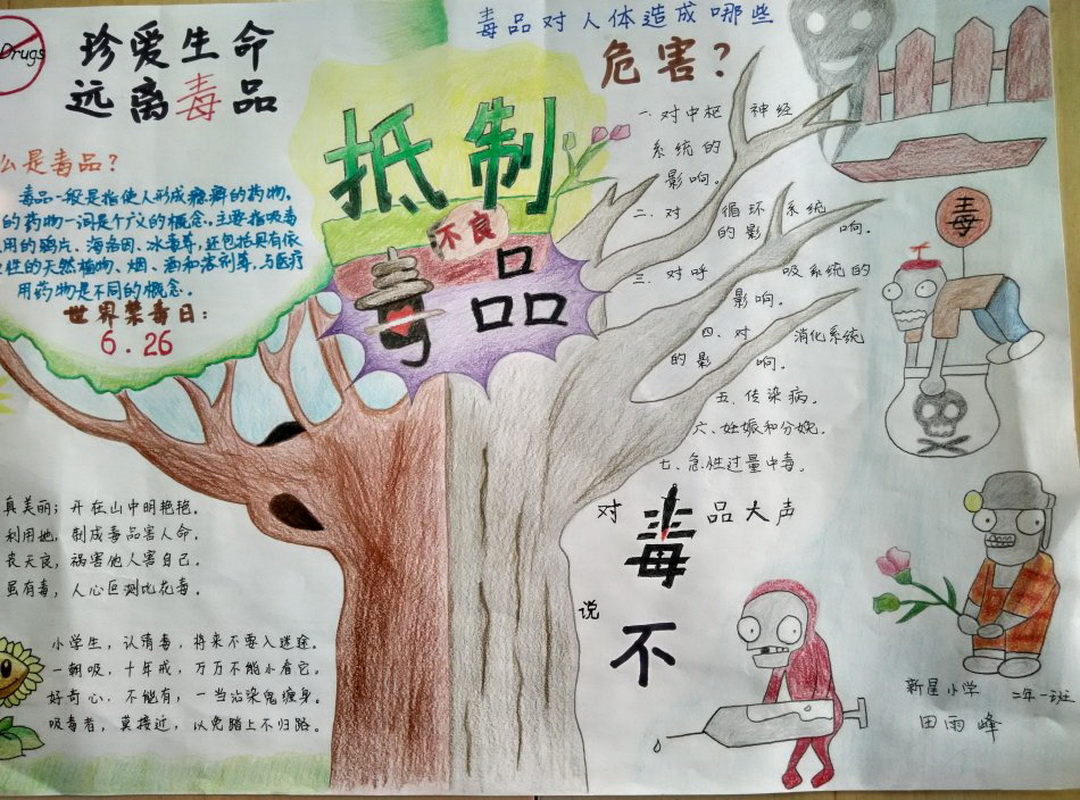 Drugs
珍爱生命
远离毒品
么是毒品？
毒品一般是指使人形成瘾癖的药物。
的药物一词是个广义的概念。主要指吸毒
用的鸦片、海洛因、冰毒等，还包括具有依
性的天然植物、烟、酒和溶剂等，与医疗
用药物是不同的概念。
世界禁毒日：
6.26
抵制
不良
毒品
毒品对人体造成哪些
危害？
一、对中枢神经
系统的
影响。
二、对循环系统
的影响。
三、对呼吸系统的
影响。
四、对消化系统
的影响。
五、传染病。
六、妊娠和分娩。
七、急性过量中毒。
对毒品大声
说
不
毒
真美丽；开在山中明艳艳。
利用她，制成毒品害人命。
丧天良，祸害他人害自己。
虽有毒，人心叵测比花毒。
小学生，认清毒，将来不要入迷途。
一朝吸，十年戒，万万不能小看它。
好奇心，不能有，一当沾染鬼缠身。
吸毒者，莫接近，以免踏上不归路。
新星小学 二年一班
田雨峰